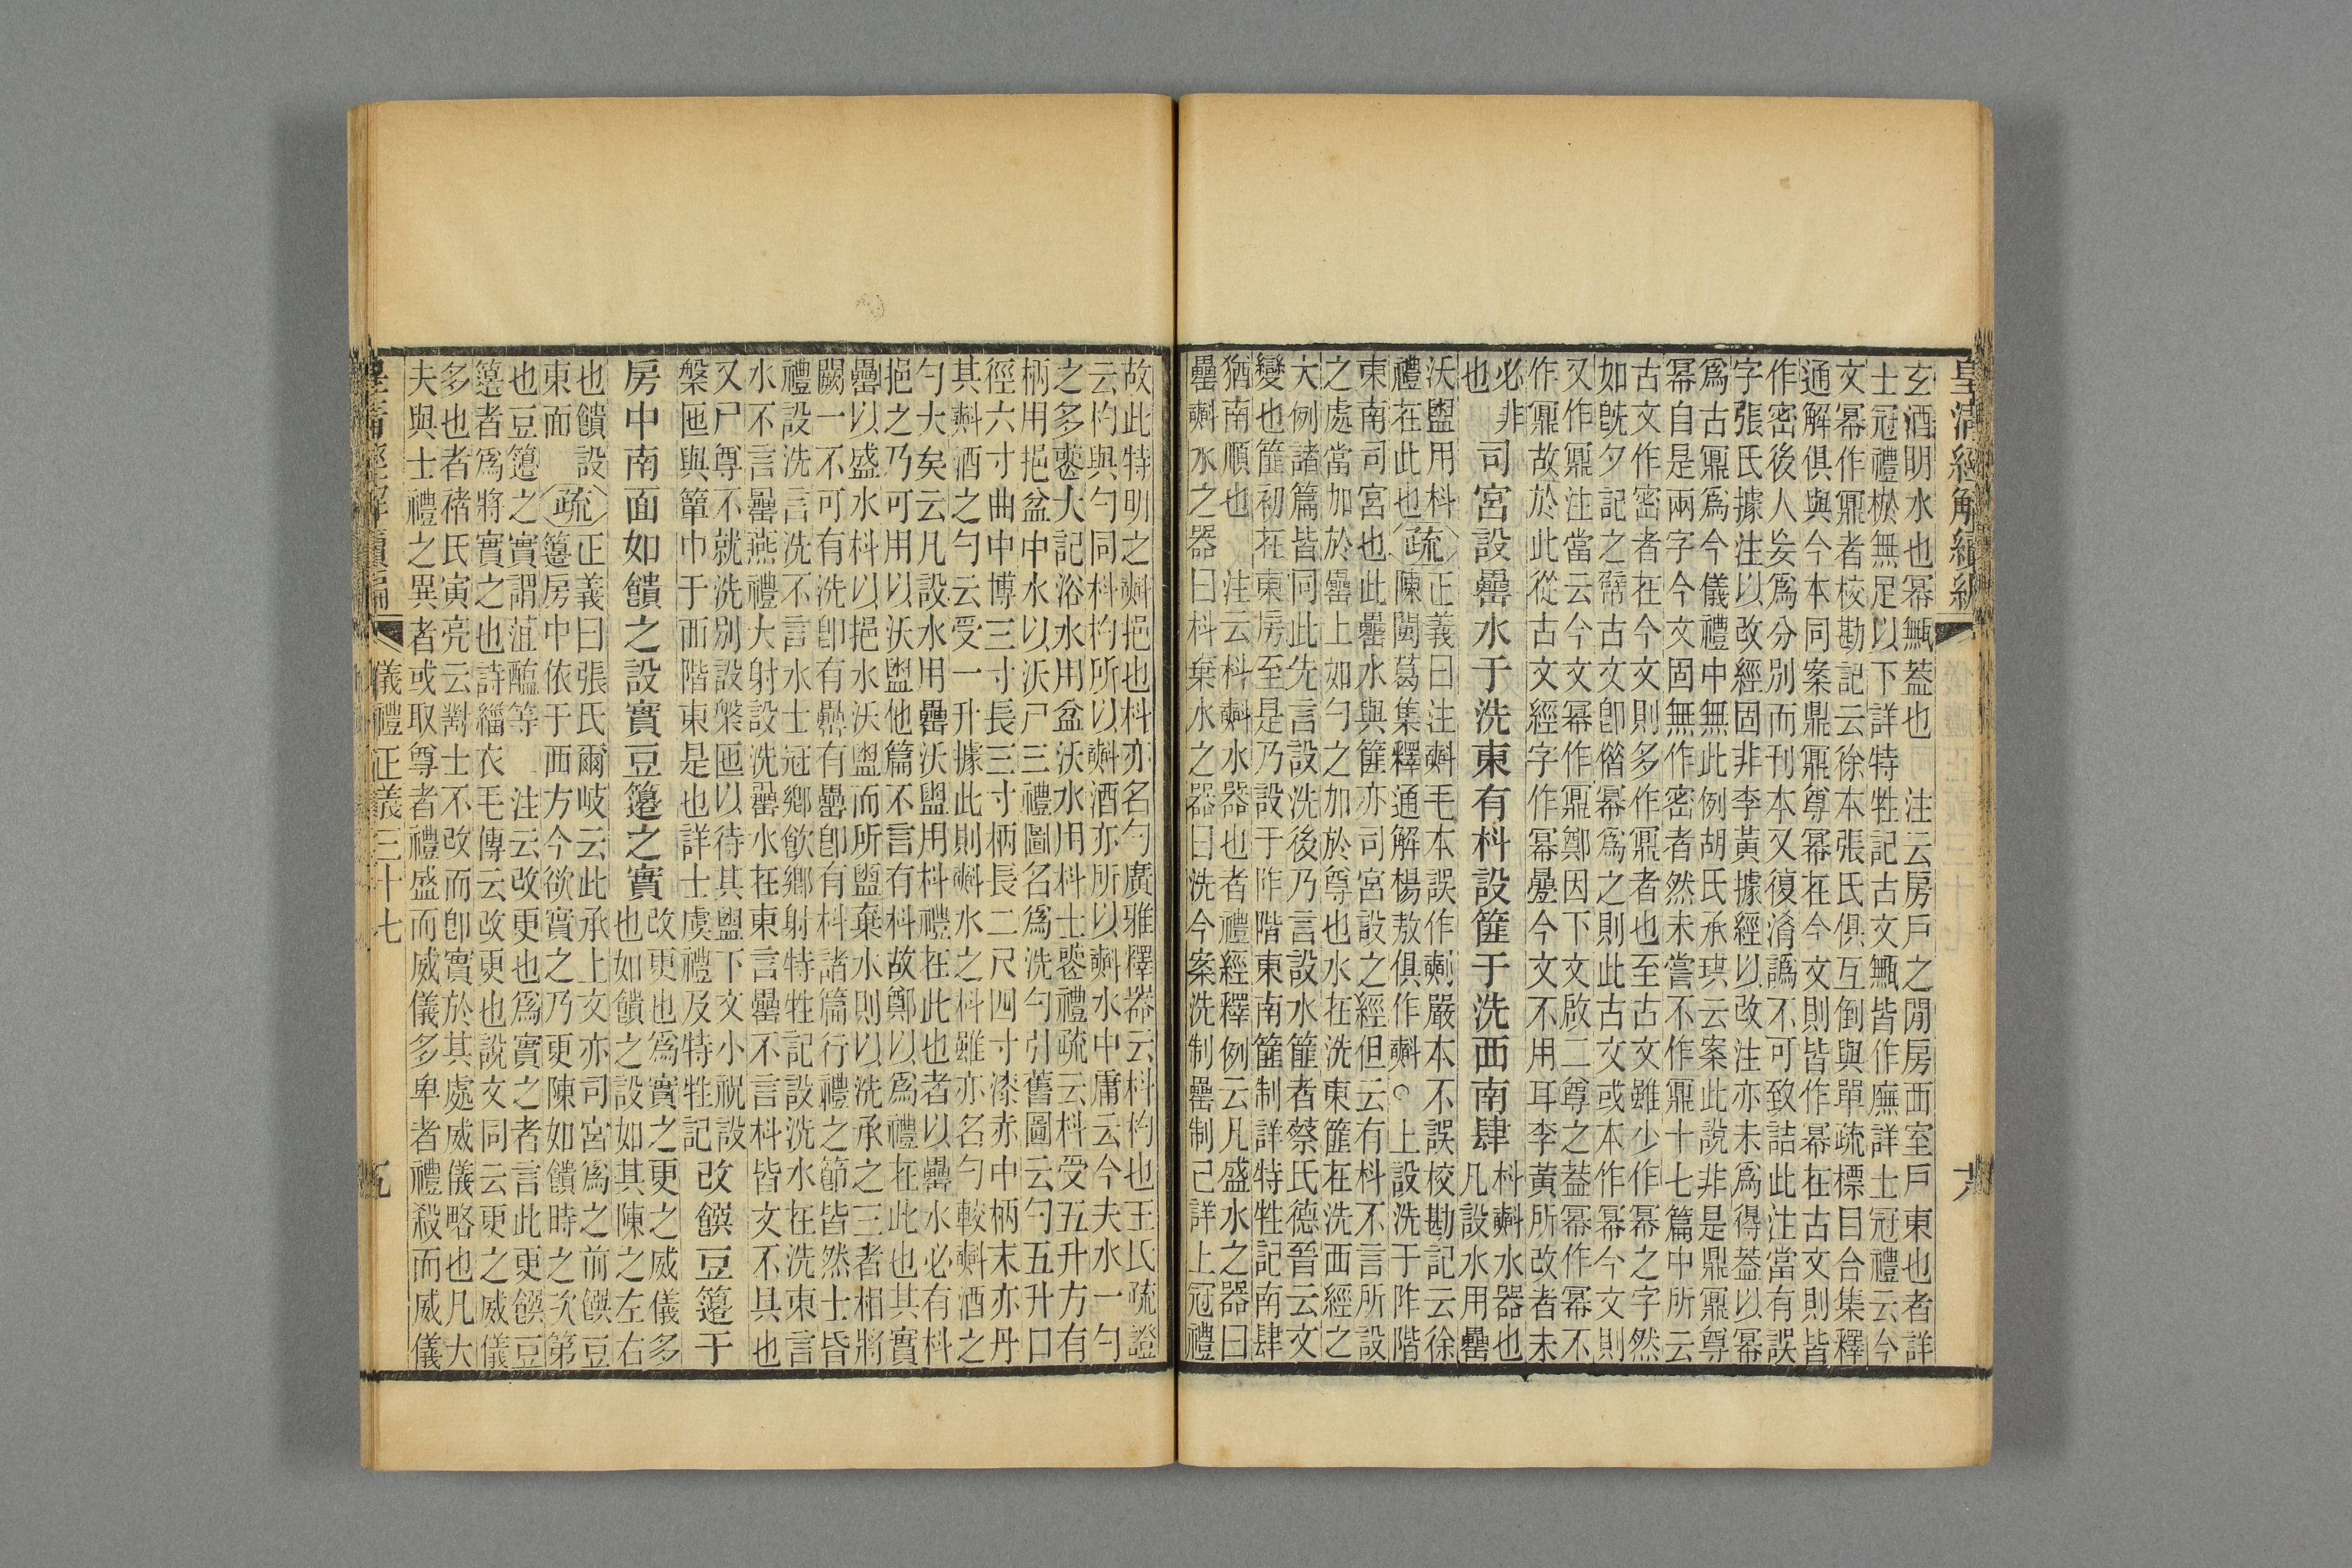 皇清經解續編
玄酒明水也冪甒蓋也　注云房戶之閒房西室戶東也者詳
士冠禮棜無足以下詳特牲記古文甒皆作廡詳士冠禮云今
文冪作鼏者校勘記云徐本張氏俱互倒與單疏標目合集釋
通解俱與今本同案鼎鼏尊冪在今文則皆作冪在古文則皆
作密後人妄爲分別而刊本又復淆譌不可致詰此注當有誤
字張氏據注以改經固非李黃據經以改注亦未爲得蓋以冪
爲古鼏爲今儀禮中無此例胡氏承珙云案此說非是鼎鼏尊
冪自是兩字今文固無作密者然未嘗不作鼏十七篇中所云
古文作密者在今文則多作鼏者也至古文雖少作冪之字然
如旣夕記之幦古文卽偺冪爲之則此古文或本作冪今文則
又作鼏注當云今文冪作鼏鄭因下文啟二尊之蓋冪作冪不
作鼏故於此從古文經字作冪疊今文不用耳李黃所改者未
必非
也　司宮設罍水于洗東有枓設篚于洗西南肆
枓㪺水器也
凡設水用罍
沃盥用枓
禮在此也
疏　正義曰注㪺毛本誤作㪺嚴本不誤校勘記云徐
陳閩葛集釋通解楊敖俱作㪺○上設洗于阼階
東南司宮也此罍水與篚亦司宮設之經但云有枓不言所設
之處當加於罍上如勺之加於尊也水在洗東篚在洗西經之
大例諸篇皆同此先言設洗後乃言設水篚者蔡氏德晉云文
變也篚初在東房至是乃設于阼階東南篚制詳特牲記南肆
猶南順也　注云枓㪺水器也者禮經釋例云凡盛水之器曰
罍㪺水之器曰枓棄水之器曰洗今案洗制罍制己詳上冠禮
故此特明之㪺挹也枓亦名勺廣雅釋器云枓杓也王氏疏證
云杓與勺同枓杓所以㪺酒亦所以㪺水中庸云今夫水一勺
之多喪大記浴水用盆沃水用枓士喪禮疏云枓受五升方有
柄用挹盆中水以沃尸三禮圖名爲洗勺引舊圖云勺五升口
徑六寸曲中博三寸長三寸柄長二尺四寸漆赤中柄末亦丹
其㪺酒之勺云受一升據此則㪺水之枓雖亦名勺較㪺酒之
勺大矣云凡設水用罍沃盥用枓禮在此也者以罍水必有枓
挹之乃可用以沃盥他篇不言有枓故鄭以爲禮在此也其實
罍以盛水枓以挹水沃盥而所盥棄水則以洗承之三者相將
闕一不可有洗卽有罍有罍卽有枓諸篇行禮之節皆然士昏
禮設洗言洗不言水士冠鄉飲鄉射特牲記設洗水在洗東言
水不言罍燕禮大射設洗罍水在東言罍不言枓皆文不具也
又尸尊不就洗別設槃匜以待其盥下文小祝設
槃匜與簞巾于西階東是也詳士虞禮及特牲記　改饌豆籩于
房中南面如饋之設實豆籩之實
改更也爲實之更之威儀多
也如饋之設如其陳之左右
也饋設
東面
疏　正義曰張氏爾岐云此承上文亦司宮爲之前饌豆
籩房中依于西方今欲實之乃更陳如饋時之次第
也豆籩之實謂菹醢等　注云改更也爲實之者言此更饌豆
籩者爲將實之也詩緇衣毛傳云改更也說文同云更之威儀
多也者褚氏寅亮云對士不改而卽實於其處威儀略也凡大
夫與士禮之異者或取尊者禮盛而威儀多卑者禮殺而威儀
儀禮正義三十七